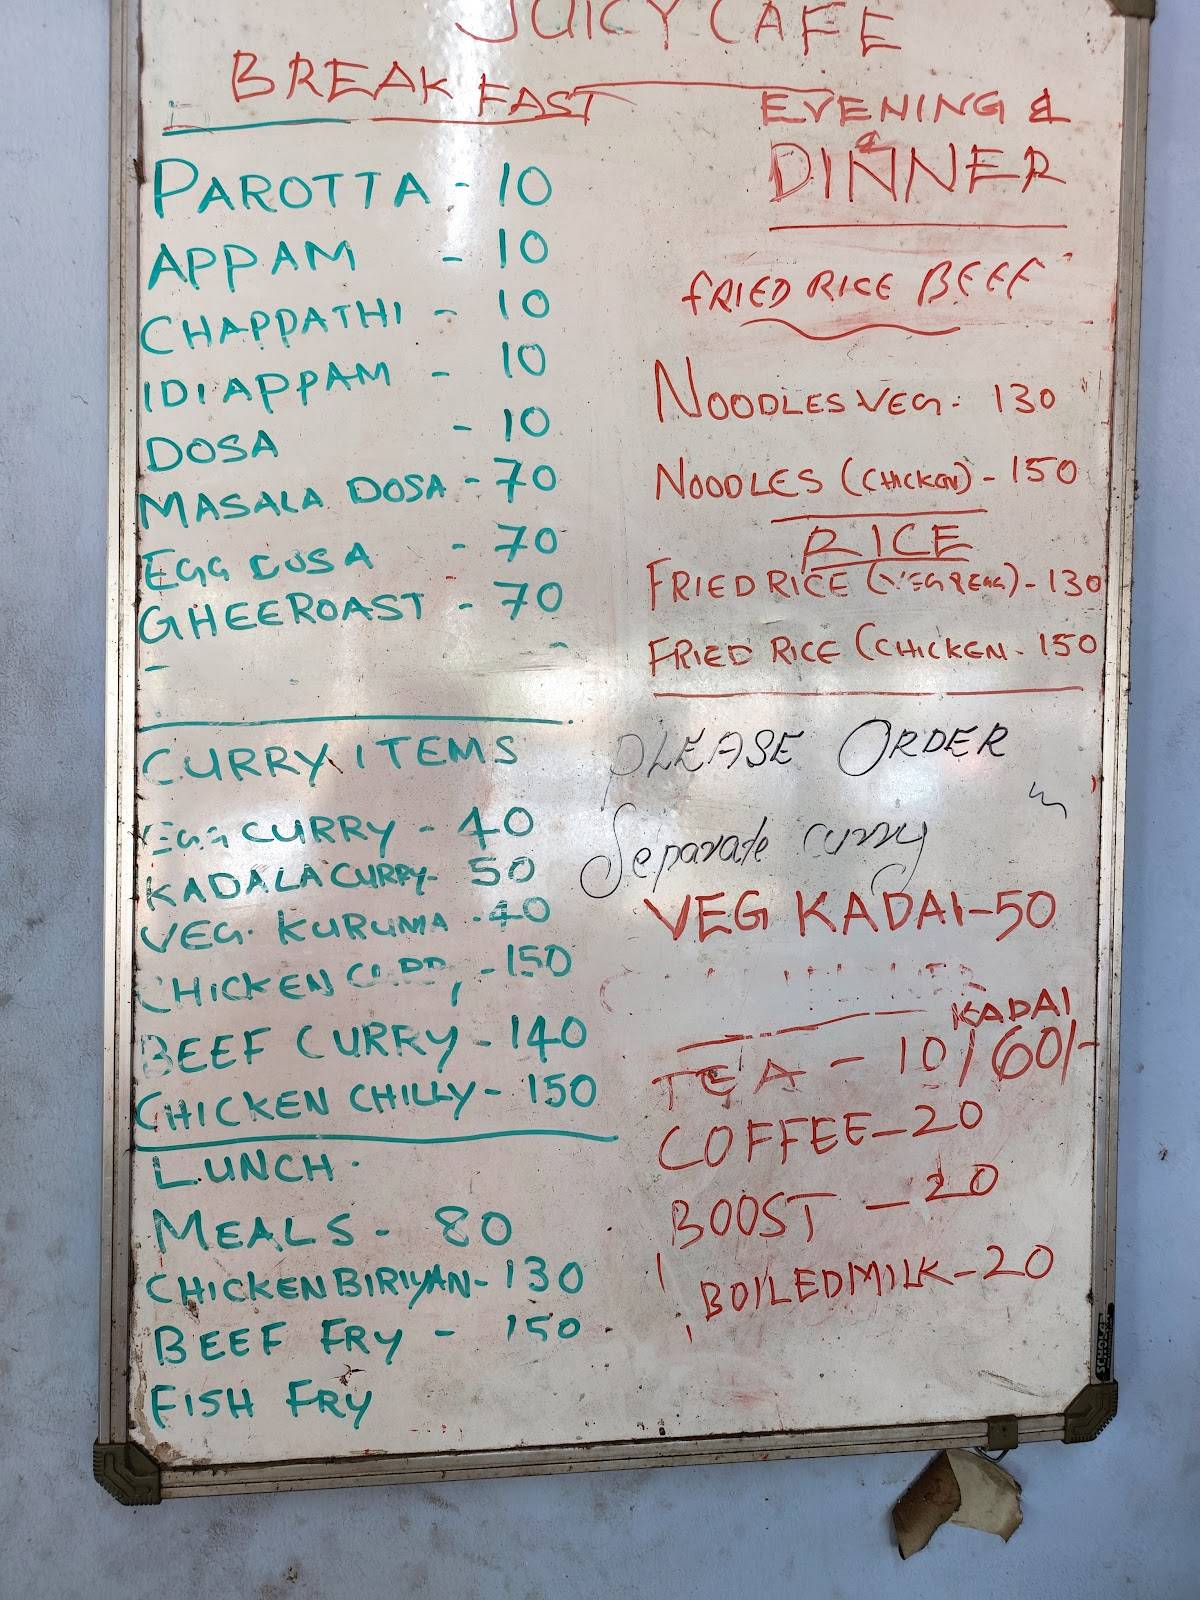 JUICY CAFE
BREAK FAST
PAROTTA - 10
APPAM - 10
CHAPPATHI - 10
IDIAPPAM - 10
DOSA - 10
MASALA DOSA - 70
EGG DOSA - 70
GHEEROAST - 70
CURRY ITEMS
EGG CURRY - 40
KADALA CURRY - 50
VEG. KURUMA - 40
CHICKEN - 150
BEEF CURRY - 140
CHICKEN CHILLY - 150
LUNCH.
MEALS - 80
CHICKEN BIRIYAN - 130
BEEF FRY - 150
FISH FRY
EVENING &
DINNER
FRIED RICE BEEF
NOODLES VEG - 130
NOODLES (CHICKEN) - 150
RICE
FRIED RICE (VEG & EGG) - 130
FRIED RICE (CHICKEN - 150
PLEASE ORDER
Separate curry
VEG KADAI - 50
KADAI
TEA - 10/60/-
COFFEE - 20
BOOST - 20
BOILED MILK - 20